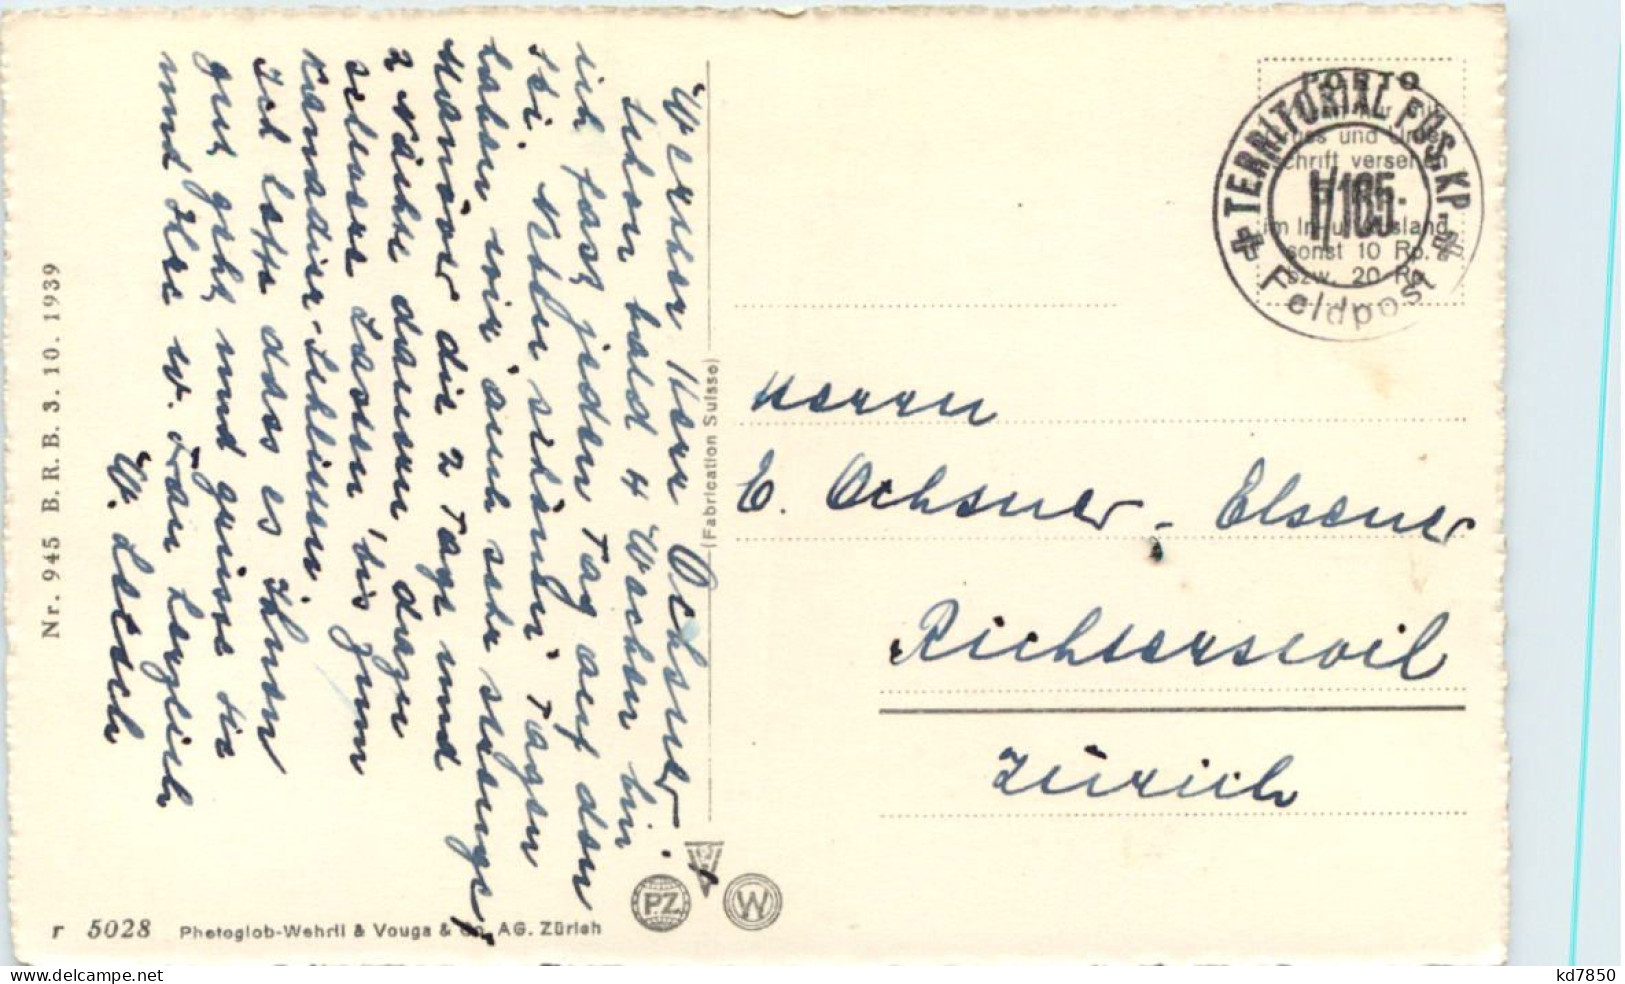 Werter Herr Ochsner!
Schon bald 4 Wochen bin
ich fast jeden Tag auf den
Ski. Neben schönen Tagen
haben wir auch sehr strenge
Manöver die 2 Tage und
2 Nächte dauern dazu
schwere Lasten bis zum
Kanadier-Schlitten.
Ich hoffe das es Ihnen
gut geht und grüsse Sie
und Ihre w. Frau herzlich
W. Leesch
(Fabrication Suisse)
Nr. 945 B. R. B. 3. 10. 1939
r 5028 Photoglob-Wehrli & Vouga & Co. AG. Zürich
PZ
W
PORTO
und Unter
schrift versehen
im In- u. Ausland
sonst 10 Rp.
bzw. 20 Rp.
TERRITORIAL FÜS. KP.
I/165
Feldpost
Herrn
E. Ochsner - Elsener
Richterswil
Zürich
kd7850